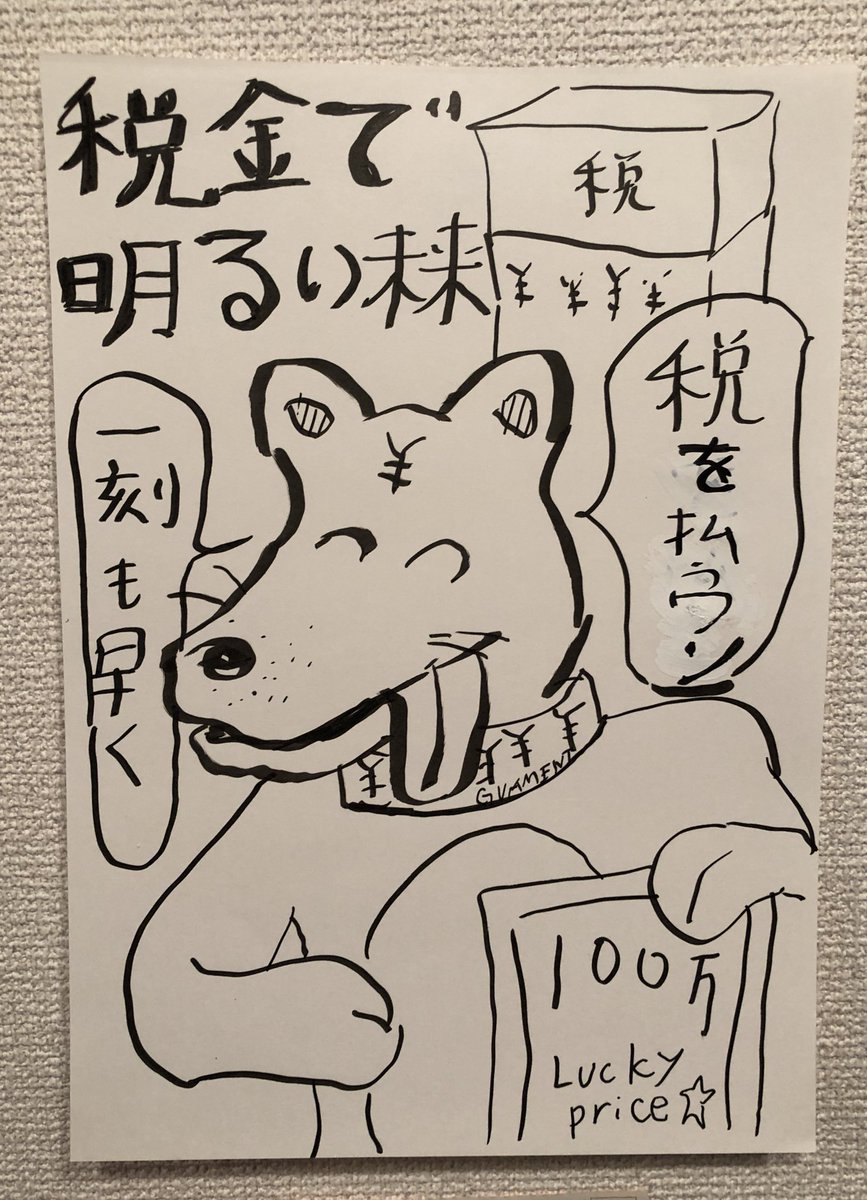 税金で
明るい未来
税
¥ ¥ ¥ ¥
税を払ウン
一刻も早く
¥
¥ ¥ ¥ ¥
GUAMENT
100万
Lucky
price☆